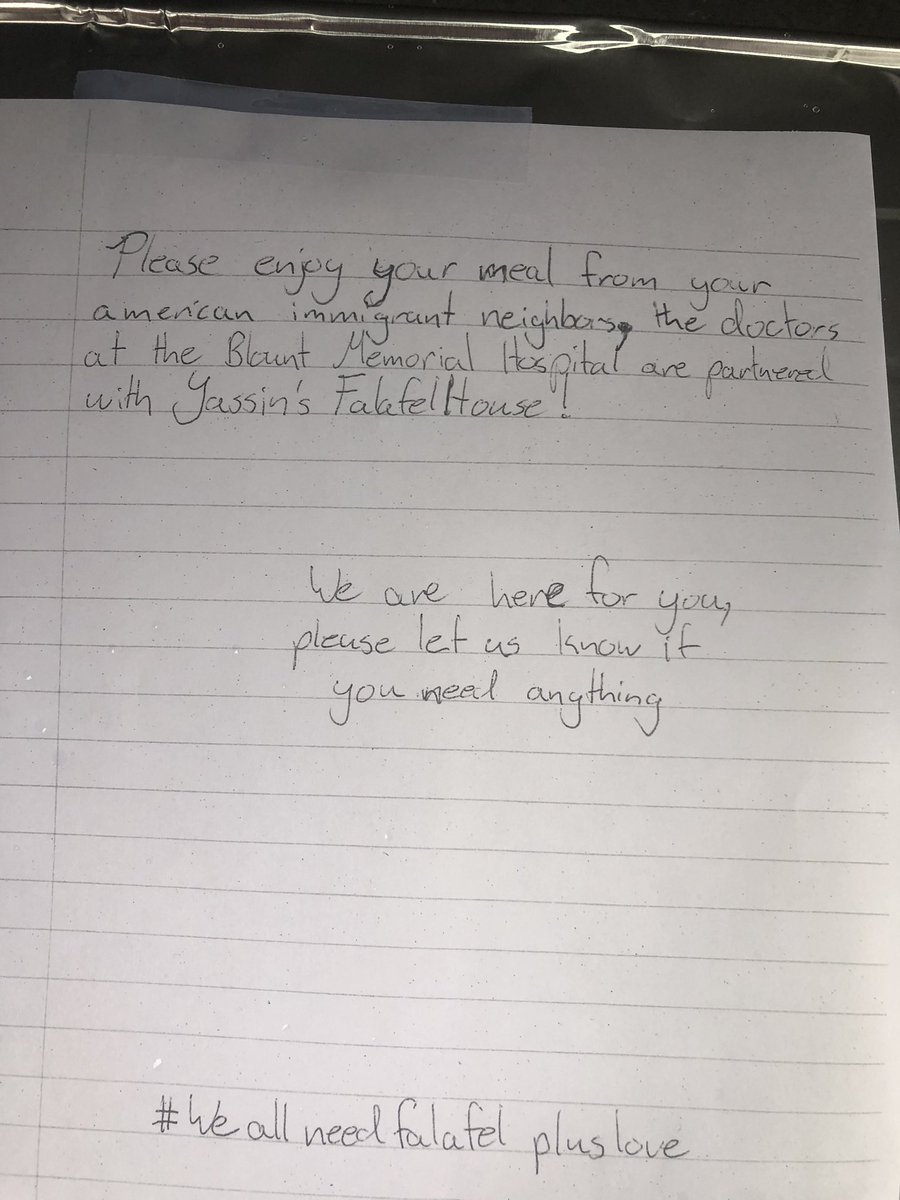 Please enjoy your meal from your
american immigrant neighbors, the doctors
at the Blount Memorial Hospital are partnered
with Yassin's Falafel House!
We are here for you,
please let us know if
you need anything
#We all need falafel plus love